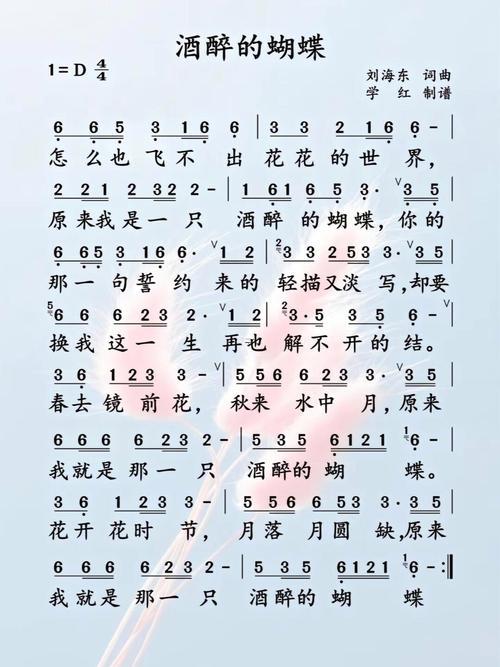 酒醉的蝴蝶
1=D 4/4
刘海东 词曲
学 红 制谱
6 6 5 3 1 6 6 | 3 3 2 1 2 6 - |
怎么也飞不 出花花的世 界，
2 2 1 2 3 2 2 - | 1 6 1 6 3 5 3· ∨3 5 |
原来我是一 只 酒醉 的 蝴蝶，你的
6 6 3 1 6 6· ∨1 2 | 2 3 5 2 3 3· ∨3 5 |
那一 句誓 约 来的 轻描又淡 写，却要
5 6 6 6 2 3 2· ∨1 2 | 2 3·5 3 5 1 6 6 - |
换我 这一 生 再也 解不 开的 结。
3 6 1 2 3 3 - ∨| 5 3 2 1 2 3 2· ∨3 5 |
春去 镜 前花， 秋来 水中 月，原来
6 6 6 6 2 3 2 - | 5 3 5 6 1 2 1 1 6 - |
我就是 那一 只 酒醉的 蝴 蝶。
3 6 1 2 3 3 - | 2 6 6 6 5 3 5· 3 5 |
花开 花时 节， 月落 月圆 缺，原来
6 6 6 6 2 3 2 - | 5 3 5 6 1 2 1 1 6 - :‖
我就是 那一 只 酒醉的 蝴 蝶